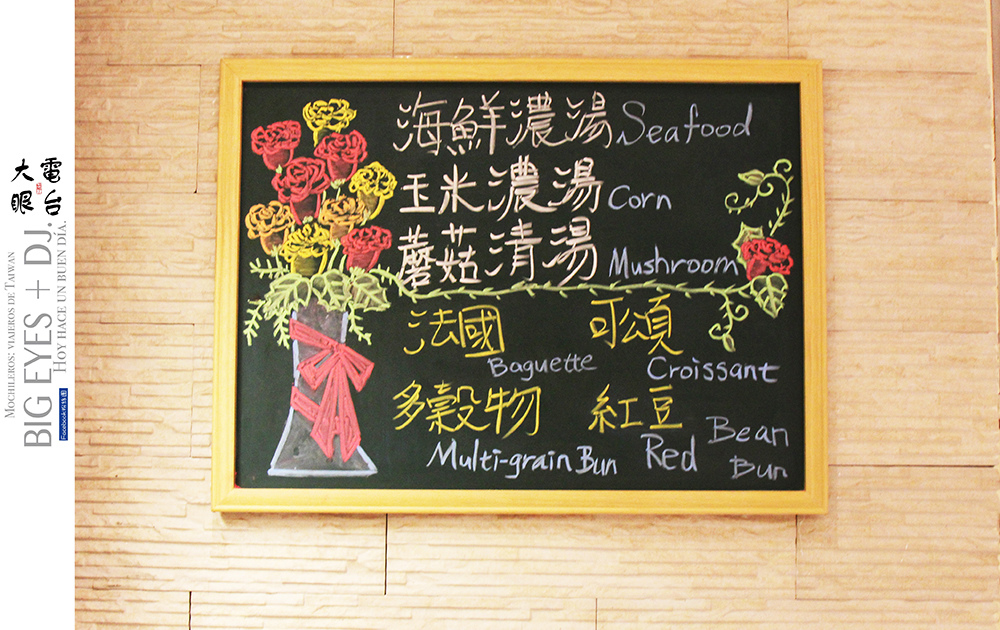 海鮮濃湯 Seafood
玉米濃湯 Corn
蘑菇清湯 Mushroom
法國 可頌
Baguette Croissant
多穀物 紅豆
Multi-grain Bun Red Bean Bun
大眼電台
MOCHILEROS: VIAJEROS DE TAIWAN
BIG EYES + DJ.
HOY HACE UN BUEN DÍA.